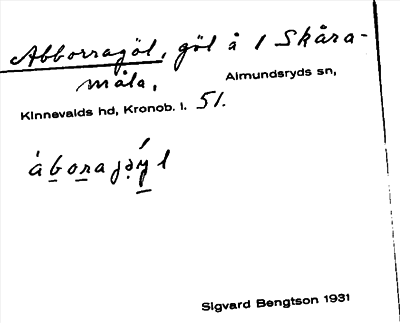 Abborragöl, göl å 1 Skåra-
måla,
Almundsryds sn,
Kinnevalds hd, Kronob. l. 51.
Sigvard Bengtson 1931